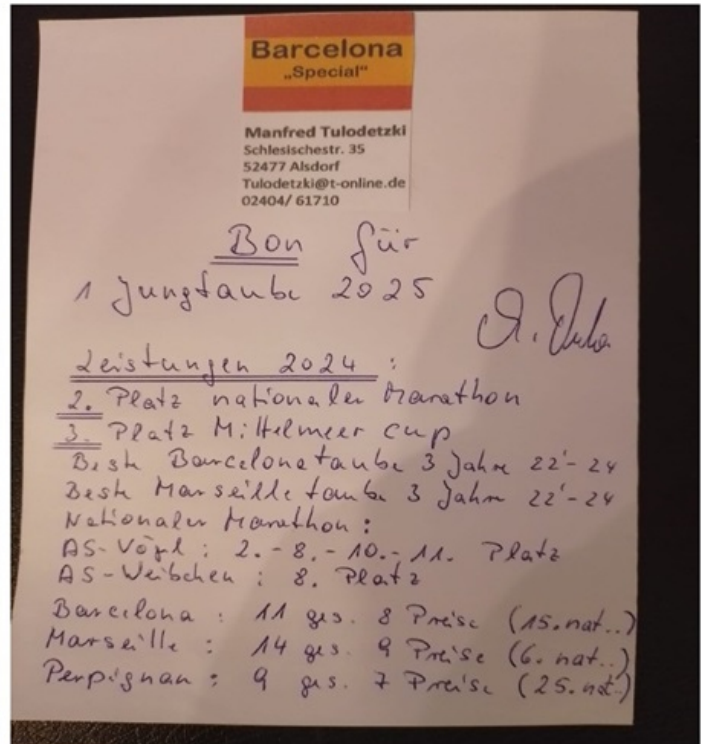 Barcelona
„Special“
Manfred Tulodetzki
Schlesischestr. 35
52477 Alsdorf
Tulodetzki@t-online.de
02404/ 61710
Bon für
1 Jungtaube 2025
Leistungen 2024 :
2. Platz nationaler Marathon
3. Platz Mittelmeer cup
Beste Barcelonataube 3 Jahre 22'- 24
Beste Marseilletaube 3 Jahre 22'- 24
Nationaler Marathon :
AS-Vögel : 2. - 8. - 10. - 11. Platz
AS-Weibchen : 8. Platz
Barcelona : 11 ges. 8 Preise (15. nat..)
Marseille : 14 ges. 9 Preise (6. nat..)
Perpignan : 9 ges. 7 Preise (25. nat.)